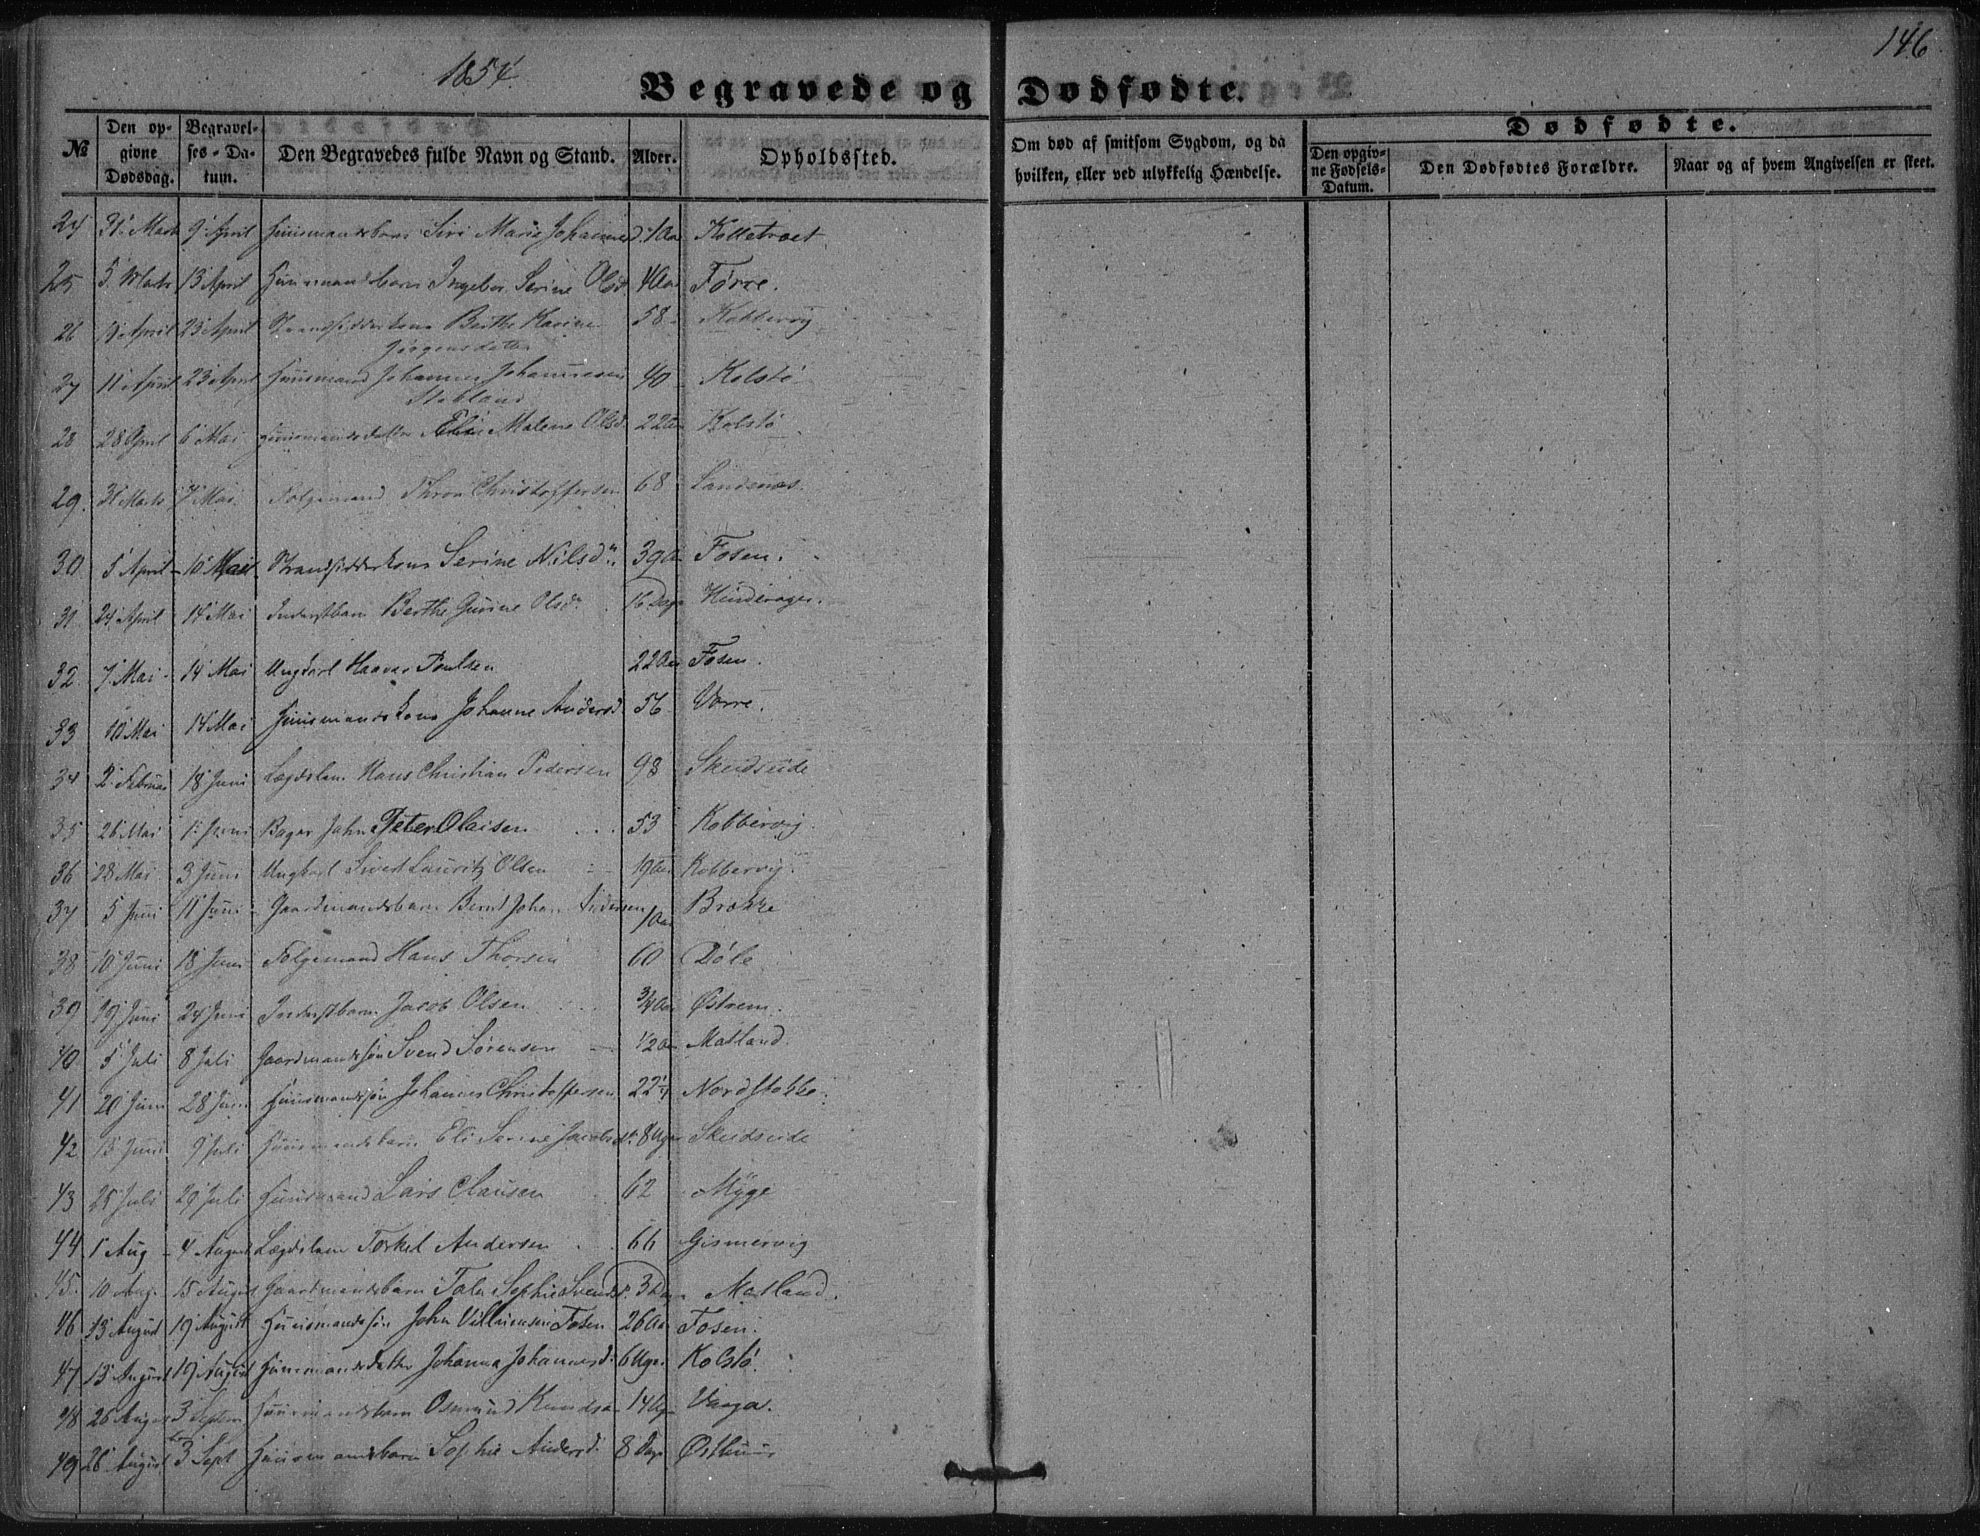 146
1854
Begravede og Dødfødte.
№ Den opgivne Dødsdag. Begravelses-Datum. Den Begravedes fulde Navn og Stand. Alder. Opholdssted. Om død af smitsom Sygdom, og da hvilken, eller ved ulykkelig Hændelse. Dødfødte. Den opgivne Fødsels-Datum. Den Dødfødtes Forældre. Naar og af hvem Angivelsen er skeet.
24 31 Marts 9 April Huusmandsbarn Siri Marie Johannesd. 1 Aar
25 5 Marts 13 April Huusmandsbarn Ingebor Serine Olsd. 4 Aar Førre.
26 April 23 April Strandsidderkone Berthe Karine 58 Kobbervig
Jørgensdatter
27 11 April 23 April Huusmand Johannes Johannesen 40 Kolstø
28 28 April 6 Mai Huusmandsdatter Malene Olsd. 22 Aar Kolstø
29. 31 Marts 7 Mai Folgemand Christoffersen 68 Sandenæs.
30 5 April 10 Mai Strandsidderkone Serine Nilsdr. 39 Aar Fosen.
31 24 April 14 Mai Inderstbarn Berthe Gurine Olsdr. 16 Dage Hinderager.
32 7 Mai 14 Mai Ungkarl Haavar Poulsen 22 Aar Fosen.
33 10 Mai 14 Mai Huusmandskone Johanne Andersd. 56 Vorre.
34 2 Februar 18 Juni Lægdslem Hans Christian Pedersen 98 Skeidseide
35 26 Mai 1 Juni Bager John Peter Olaisen 53 Kobbervig
36 28 Mai 3 Juni Ungkarl Sivert Lauritz Olsen 19 Aar Kobbervig.
37 5 Juni 11 Juni Gaardmandsbarn Bernt Johan Pedersen 1 Aar Brække
38 10 Juni 18 Juni Folgemand Hans Thorsen 60 Døle
39 19 Juni 24 Juni Inderstbarn Jacob Olsen 3/4 Aar Østrem.
40 5 Juli 8 Juli Gaardmandssøn Svend Sørensen 1/2 Aar Matland.
41 20 Juni 28 Juni Huusmandssøn Johannes Christoffersen 22 1/4 Nordstokke.
42 15 Juni 9 Juli Huusmandsbarn Eli Serine Jacobsdr. 8 Uger Skeidseide
43 25 Juli 29 Juli Huusmand Lars Clausen 62 Myge
44 1 Aug 4 August Lægdslem Torkel Andersen 66 Gismervig
45. 10 Aug. 15 August Gaardmandsbarn Tale Sophie Svendsd. 3 Matland.
46 13 August 19 August Huusmandssøn John Villumsen Fosen 26 Aar Fosen.
47 13 August 19 August Huusmandsdatter Johanna Johannesd. 6 Uger Kolstø.
48 26 August 3 Septem Huusmandsbarn Osmund Knudsen 14 Vaaga.
49 26 August 3 Sept Huusmandsbarn Sophie Andersd. 8 Dage Østhuus